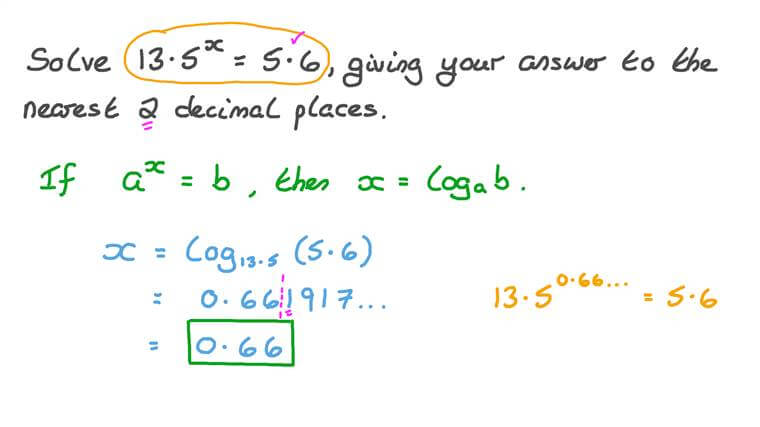 Solve 13·5ˣ = 5·6, giving your answer to the
nearest 2 decimal places.
If aˣ = b, then x = logₐb.
x = log₁₃.₅ (5·6)
= 0.661917...
13·5^0.66... = 5·6
= 0.66